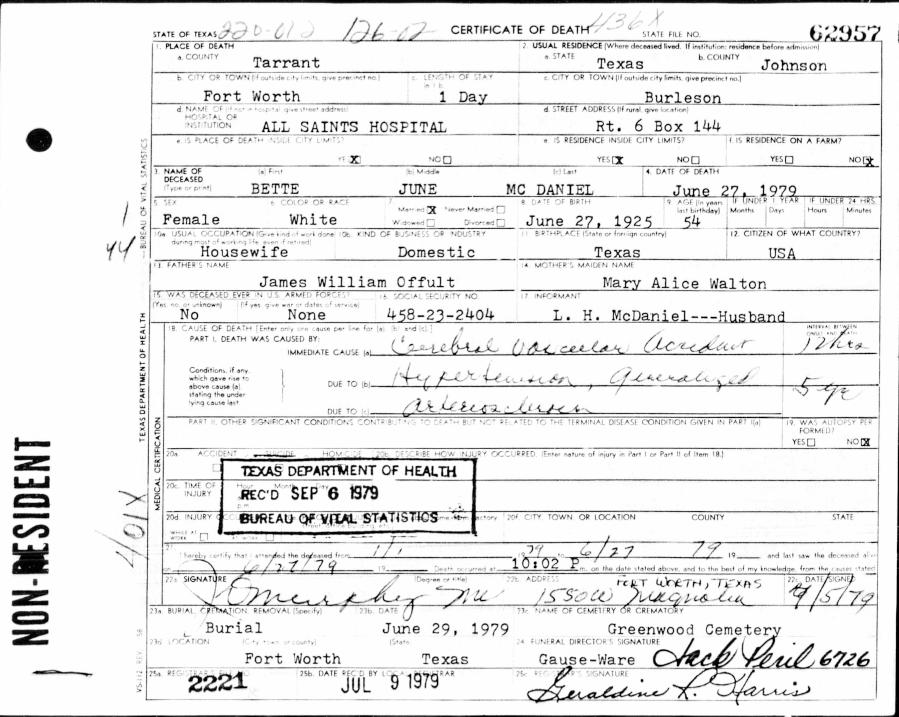 220-612 126-02 CERTIFICATE OF DEATH 436X
STATE OF TEXAS STATE FILE NO. 62957
1. PLACE OF DEATH 2. USUAL RESIDENCE (Where deceased lived. If institution: residence before admission)
a. COUNTY Tarrant a. STATE Texas b. COUNTY Johnson
b. CITY OR TOWN (If outside city limits, give precinct no.) c. LENGTH OF STAY c. CITY OR TOWN (If outside city limits, give precinct no.)
Fort Worth 1 Day Burleson
d. NAME OF (If not in hospital, give street address) HOSPITAL OR INSTITUTION d. STREET ADDRESS (If rural, give location)
ALL SAINTS HOSPITAL Rt. 6 Box 144
e. IS PLACE OF DEATH INSIDE CITY LIMITS? e. IS RESIDENCE INSIDE CITY LIMITS? f. IS RESIDENCE ON A FARM?
YES X NO YES X NO YES NO X
3. NAME OF DECEASED (Type or print) (a) First (b) Middle (c) Last 4. DATE OF DEATH
BETTE JUNE MC DANIEL June 27, 1979
5. SEX 6. COLOR OR RACE 7. Married X Never Married Widowed Divorced 8. DATE OF BIRTH 9. AGE (In years last birthday) IF UNDER 1 YEAR Months Days IF UNDER 24 HRS. Hours Minutes
Female White June 27, 1925 54
10a. USUAL OCCUPATION (Give kind of work done during most of working life, even if retired) 10b. KIND OF BUSINESS OR INDUSTRY 11. BIRTHPLACE (State or foreign country) 12. CITIZEN OF WHAT COUNTRY?
Housewife Domestic Texas USA
13. FATHER'S NAME 14. MOTHER'S MAIDEN NAME
James William Offult Mary Alice Walton
15. WAS DECEASED EVER IN U.S. ARMED FORCES? 16. SOCIAL SECURITY NO. 17. INFORMANT
(Yes, no, or unknown) (If yes, give war or dates of service)
No None 458-23-2404 L. H. McDaniel---Husband
18. CAUSE OF DEATH [Enter only one cause per line for (a), (b) and (c).] INTERVAL BETWEEN ONSET AND DEATH
PART I. DEATH WAS CAUSED BY:
IMMEDIATE CAUSE (a) Cerebral Vascular Accident 12 hrs
Conditions, if any, which gave rise to above cause (a), stating the underlying cause last.
DUE TO (b) Hypertension, Generalized 5 yr
DUE TO (c) Arteriosclerosis
PART II. OTHER SIGNIFICANT CONDITIONS CONTRIBUTING TO DEATH BUT NOT RELATED TO THE TERMINAL DISEASE CONDITION GIVEN IN PART I(a) 19. WAS AUTOPSY PERFORMED?
YES NO X
20a. ACCIDENT SUICIDE HOMICIDE 20b. DESCRIBE HOW INJURY OCCURRED. (Enter nature of injury in Part I or Part II of Item 18.)
TEXAS DEPARTMENT OF HEALTH
REC'D SEP 6 1979
BUREAU OF VITAL STATISTICS
20c. TIME OF INJURY Hour
20d. INJURY 20f. CITY, TOWN, OR LOCATION COUNTY STATE
WHILE AT WORK
21. I hereby certify that I attended the deceased from 19 79 to 6/27 79 19 and last saw the deceased alive
on 6/27/79 19 Death occurred at 10:02 P m. on the date stated above, and to the best of my knowledge, from the causes stated
22a. SIGNATURE (Degree or title) 22b. ADDRESS FORT WORTH, TEXAS 22c. DATE SIGNED
Murphey MD 1550 W Magnolia 9/5/79
23a. BURIAL, CREMATION, REMOVAL (Specify) 23b. DATE 23c. NAME OF CEMETERY OR CREMATORY
Burial June 29, 1979 Greenwood Cemetery
23d. LOCATION (City, town, or county) (State) 24. FUNERAL DIRECTOR'S SIGNATURE
Fort Worth Texas Gause-Ware Jack Peril 6726
25a. REGISTRAR'S FILE NO. 25b. DATE REC'D BY LOCAL REGISTRAR 25c. REGISTRAR'S SIGNATURE
2221 JUL 9 1979 Geraldine R. Harris
NON-RESIDENT
TEXAS DEPARTMENT OF HEALTH — BUREAU OF VITAL STATISTICS
MEDICAL CERTIFICATION
1
44
401X
VS-112 REV.